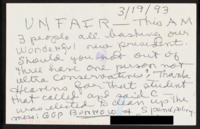 3/19/93
UNFAIR — This AM
3 people all bashing our
wonderful new president.
Should you not out of
three have one person not
ultra conservative? Thanks
Heavens for that student
that called and said C
was elected to clean up the
mess: GOP Burrow & Spend